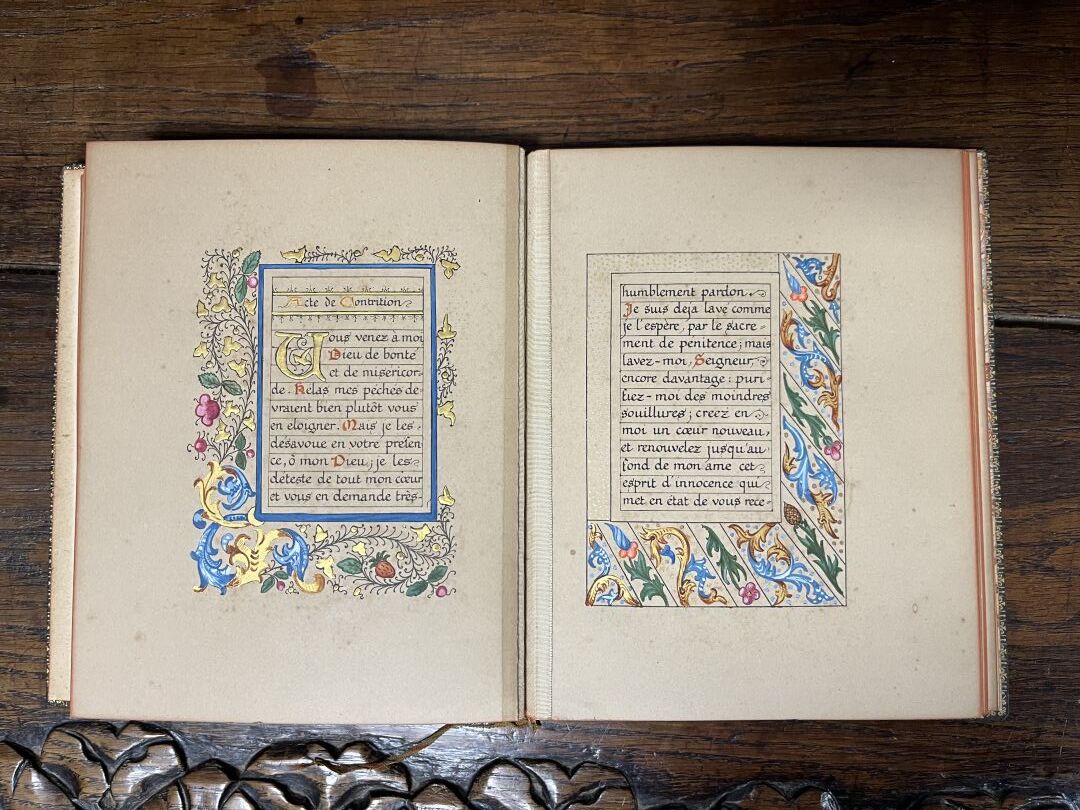 Acte de Contrition
Vous venez à moi
Dieu de bonté
et de misericor-
de. Helas mes péchés de-
vraient bien plutôt vous
en eloigner. Mais je les
desavoue en votre presen
ce, ô mon Dieu; je les
déteste de tout mon cœur
et vous en demande très-
humblement pardon.
Je suis deja lavé comme
je l'espère, par le sacre-
ment de penitence; mais
lavez-moi, Seigneur,
encore davantage: puri-
fiez-moi des moindres
souillures; creez en
moi un cœur nouveau,
et renouvelez jusqu'au
fond de mon ame cet
esprit d'innocence qui
met en état de vous rece-